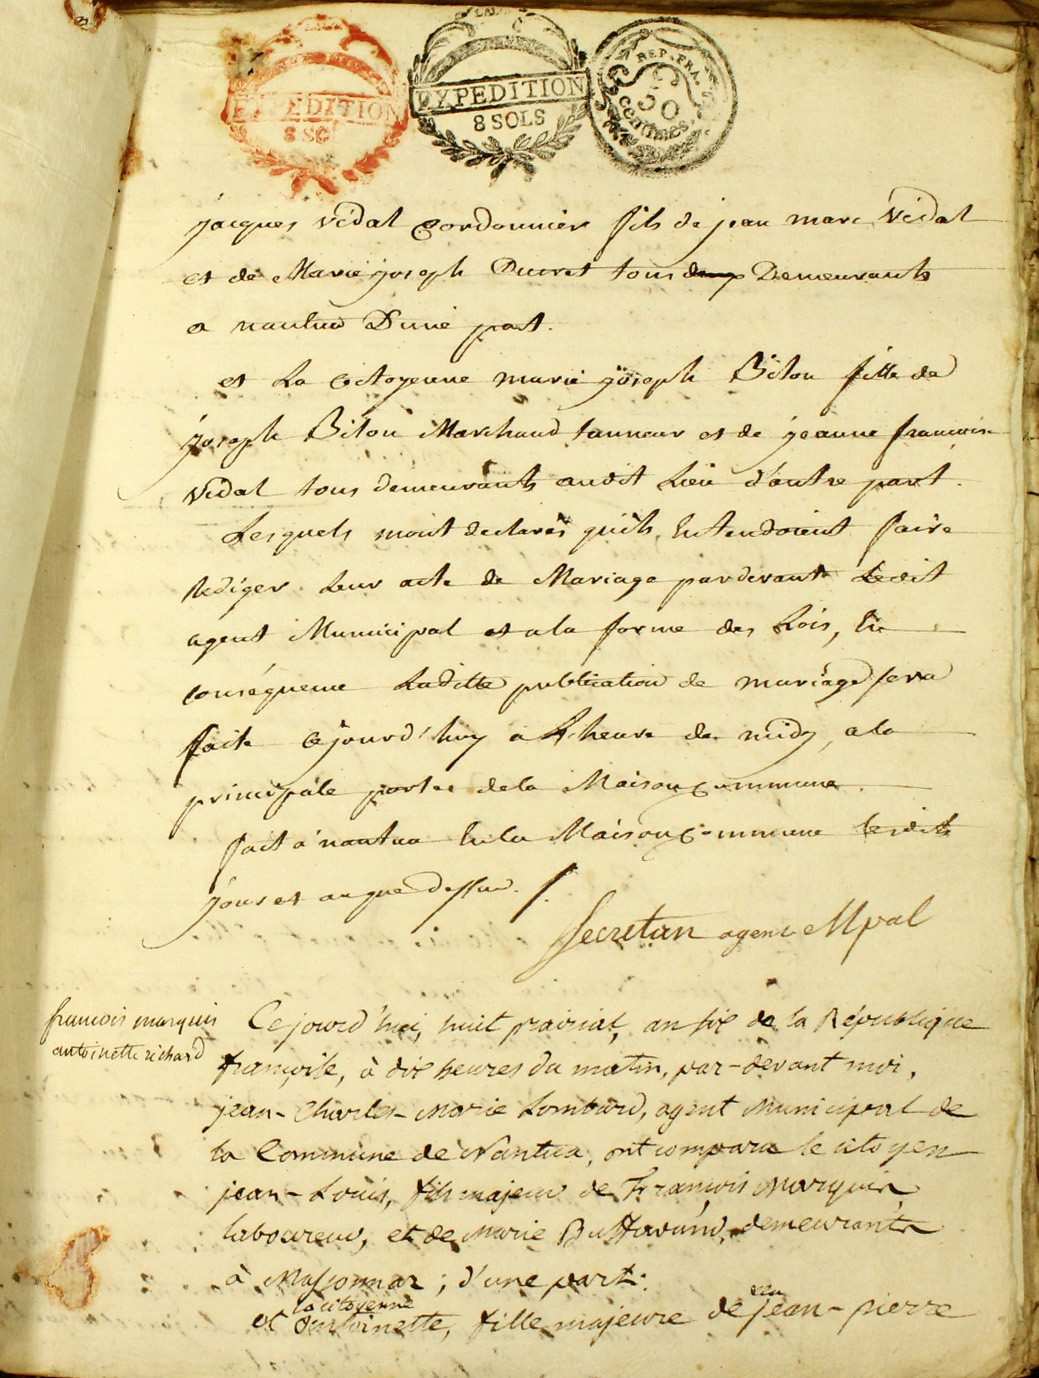 EXPEDITION
8 SOLS
EXPEDITION
8 SOLS
REP. FRA.
50
centimes
jacques vidal Cordonnier fils de jean marc vidal
et de Marie joseph Ducret tous Demeurants
a nantua D'une part.
et La Citoyenne marie joseph Bilon fille de
joseph Bilon Marchand tanneur et de jeanne francoise
vidal tous demeurants audit Lieu d'autre part.
Lesquels m'ont declarés qu'ils Entendoient faire
Rediger Leur acte de Mariage pardevant Ledit
agent Municipal et a la forme des Lois, En
conséquence Laditte publication de mariage sera
faite Cejourd'huy a L'heure de midy, a la
principale porte de la Maison Commune.
fait a nantua En la Maison Commune lesdits
jour et an que dessus.
Secretan agent Mpal
francois marquis
antoinette richard
Cejourd'hui, huit prairial, an six de la République
françoise, à dix heures du matin, par-devant moi,
jean-Charles-Marie Lombard, agent Municipal de
la Commune de Nantua, ont comparu le citoyen
jean-Louis, fils majeur de François Marquis,
laboureur, et de Marie demeurants
à ; d'une part:
et la citoyenne antoinette, fille majeure de feu jean-pierre